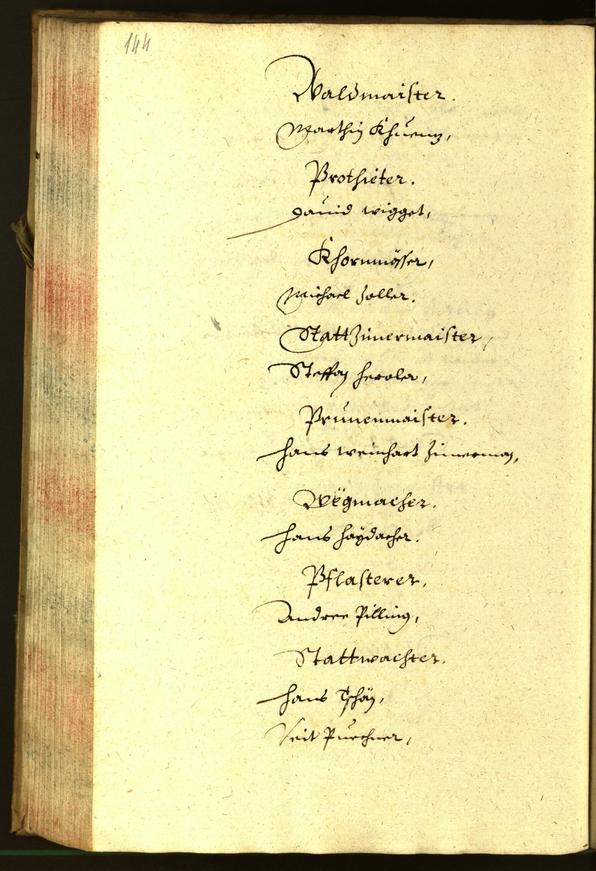 144
Waldmaister.
Marthin Khuenz,
Prothieter.
Dauid wigget,
Khornmösser,
Michael Zoller.
Stattzimermaister,
Steffan heroler,
Prunenmaister.
hans weinhart Zimerman,
Wëgmacher.
hans haÿdacher.
Pflasterer,
Andree Pilling,
Stattwachter.
hans
Veit Puechner,